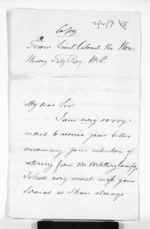 Copy
From Lieut Colonel the Hon:
Henry FitzRoy M.P.
My dear Sir
I am very sorry
to receive your letter
announcing your intention of
retiring from the
I shall very much miss your
services as I have always